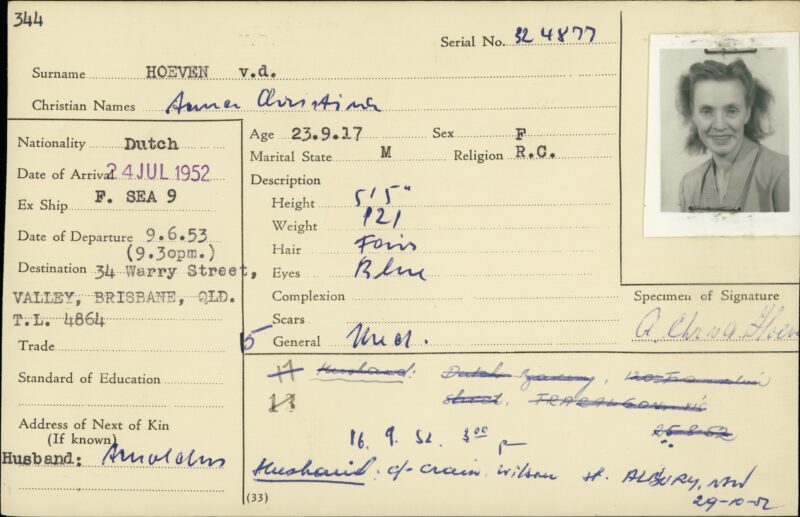 344
Serial No. 324877
Surname HOEVEN v.d.
Christian Names Anna Christina
Nationality Dutch
Date of Arrival 24 JUL 1952
Ex Ship F. SEA 9
Date of Departure 9.6.53
(9.30pm.)
Destination 34 Warry Street,
VALLEY, BRISBANE, QLD.
T.L. 4864
Trade
Standard of Education
Address of Next of Kin
(If known)
Husband: Arnoldus
Age 23.9.17 Sex F
Marital State M Religion R.C.
Description
Height 5'5"
Weight 121
Hair Fair
Eyes Blue
Complexion
Scars
5 General Med.
Specimen of Signature
A. Chr. v.d. Hoeven
17 Husband: Dutch
13 street, TRARALGON, Vic
25-8-52
16.9.52. 3 00 p
Husband: c/o Wilson st. ALBURY, NSW
29-10-52
(33)